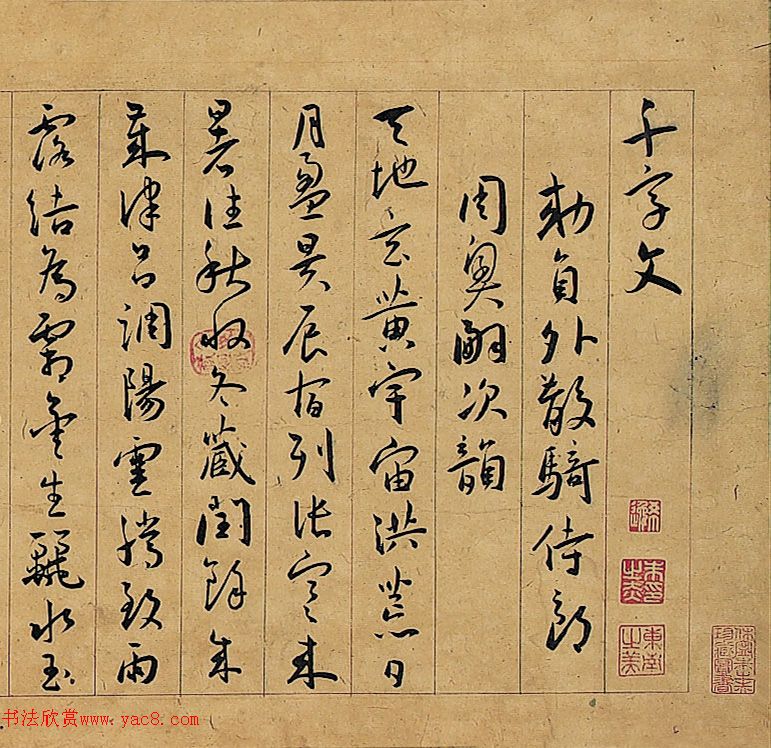 千字文
勑員外散騎侍郎
周興嗣次韻
天地玄黃宇宙洪荒日
月盈昃辰宿列張寒來
暑往秋收冬藏閏餘成
歲律呂調陽雲騰致雨
露結為霜金生麗水玉
東南之美
书法欣赏www.yac8.com